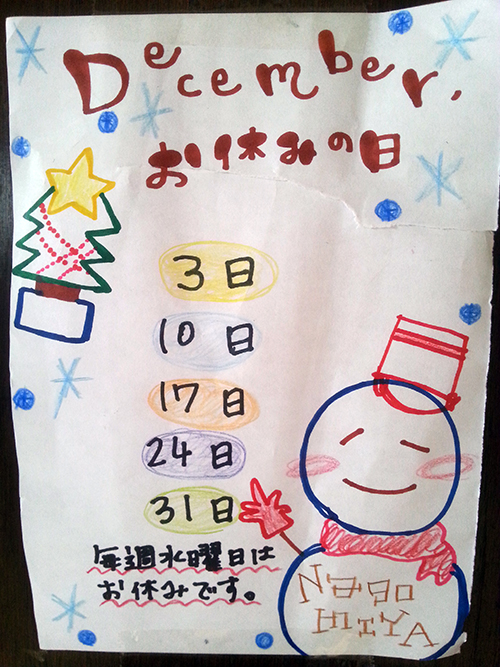 December.
お休みの日
3日
10日
17日
24日
31日
毎週水曜日は
お休みです。
Nago
MIYA